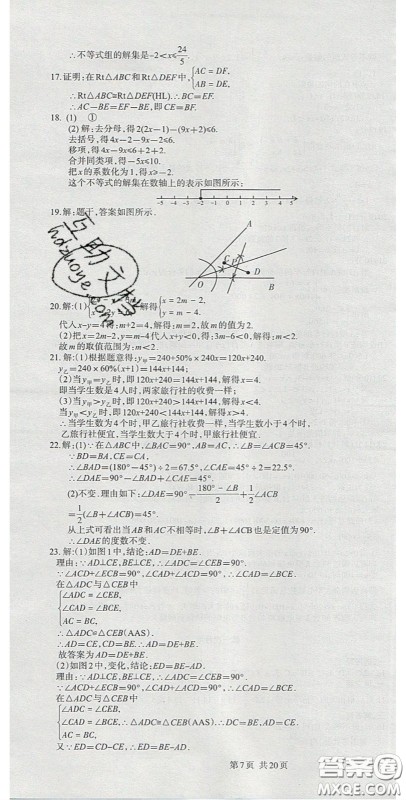 ∴不等式组的解集是-2<x≤24/5.
17.证明:在Rt△ABC和Rt△DEF中,{AC=DF, AB=DE,
∴Rt△ABC≌Rt△DEF(HL).∴BC=EF.
∴AC-BE=EF-BE,即CE=BF.
18.(1) ①
(2)解:去分母,得2(2x-1)-(9x+2)≤6.
去括号,得4x-2-9x-2≤6.
移项,得4x-9x≤6+2+2.
合并同类项,得-5x≤10.
把x的系数化为1,得x≥-2.
这个不等式的解集在数轴上的表示如图所示:
-5 -4 -3 -2 -1 0 1 2 3 4 5
19.解:题干,答案如图所示.
A
C P
D
O B
20.解:(1) 解得{x=2m-2, y=m-4.
代入x-y=4得:m+2=4,解得:m=2,故m的值为2.
(2)把x=2m-2,y=m-4代入x+y<0,得:3m-6<0,解得:m<2.
故m的取值范围为:m<2.
21.解:(1)根据题意得:y甲=240+50%×240x=120x+240.
y乙=240×60%(x+1)=144x+144;
(2)当y甲=y乙时,即120x+240=144x+144,解得x=4.
即当学生数是4人时,两家旅行社的收费一样.
(3)当y甲>y乙时,即120x+240>144x+144,解得:x<4.
当y甲<y乙时,即120x+240<144x+144,解得x>4.
∴当学生数为4个时,甲乙旅行社收费一样,当学生数小于4个时,
乙旅行社便宜,当学生数大于4个时,甲旅行社便宜.
22.解:(1)∵在△ABC中,∠BAC=90°,AB=AC,∴∠B=∠ACB=45°.
∵BD=BA,CE=CA,
∴∠BAD=(180°-45°)÷2=67.5°,∠CAE=45°÷2=22.5°.
∴∠DAE=90°-∠BAD+∠CAE=45°.
(2)不变.理由如下:∠DAE=90°-(180°-∠B)/2+1/2∠ACB
=1/2(∠B+∠ACB)=45°.
从上式可看出当AB和AC不相等时,∠B+∠ACB也是定值为90°.
∴∠DAE的度数不变.
23.解:(1)如图1中,结论:AD=DE+BE.
理由:∵AD⊥CE,BE⊥CE,∴∠ADC=∠CEB=90°.
∵∠ACD+∠ECB=90°,∠CAD+∠ACD=90°,∴∠CAD=∠BCE.
在△ADC与△CEB中
{∠ADC=∠CEB,
∠CAD=∠BCE,
AC=BC,
∴△ADC≌△CEB(AAS).
∴CD=BE,AD=CE.∴AD=DE+BE.
故答案为AD=DE+BE.
(2)如图2中,变化,结论:ED=BE-AD.
理由:∵AD⊥CE,BE⊥CE,∴∠ADC=∠CEB=90°.
∵∠ACD+∠ECB=90°,∠CAD+∠ACD=90°,∴∠CAD=∠BCE.
在△ADC与△CEB中
{∠ADC=∠CEB,
∠CAD=∠BCE,∴△ADC≌△CEB(AAS).∴DC=BE,AD=CE.
AC=BC,
又∵ED=CD-CE,∴ED=BE-AD.
第7页 共20页
互助文档
hdzuoye.com